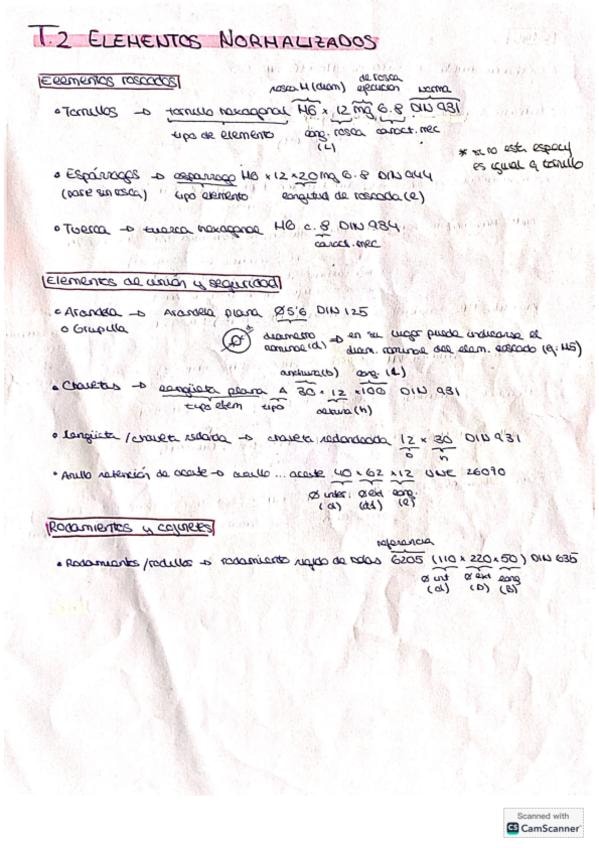 T.2 ELEMENTOS NORMALIZADOS
Elementos roscados
rosca M (diam) de rosca ejecución norma
• Tornillos → tornillo hexagonal M6 × 12 mg 6.8 DIN 931
tipo de elemento long. rosca caract. mec
(L)
* si no está especif
es igual q tornillo
• Espárragos → espárrago M6 × 12 × 20 mg 6.8 DIN 944
(parte sin rosca) tipo elemento longitud de roscada (e)
• Tuerca → tuerca hexagonal M6 c. 8 DIN 934
caract. mec
Elementos de unión y seguridad
• Arandela → Arandela plana Ø5'6 DIN 125
○ Grupilla
diámetro nominal (d) → en su lugar puede indicarse el
diam. nominal del elem. roscado (ej. M5)
anchura (b) long. (L)
• Chavetas → lengüeta plana A 30 × 12 × 100 DIN 931
tipo elem tipo altura (h)
• Lengüeta / chaveta redonda → chaveta redondeada 12 × 30 DIN 931
b h
• Anillo retención de aceite → anillo ... aceite 40 × 62 × 12 UNE 26070
Ø inter. Ø ext long.
(d) (d1) (e)
Rodamientos y cojinetes
referencia
• Rodamientos / rodillos → rodamiento rígido de bolas 6205 (110 × 220 × 50) DIN 635
Ø int Ø ext long
(d) (D) (B)
Scanned with
CS CamScanner